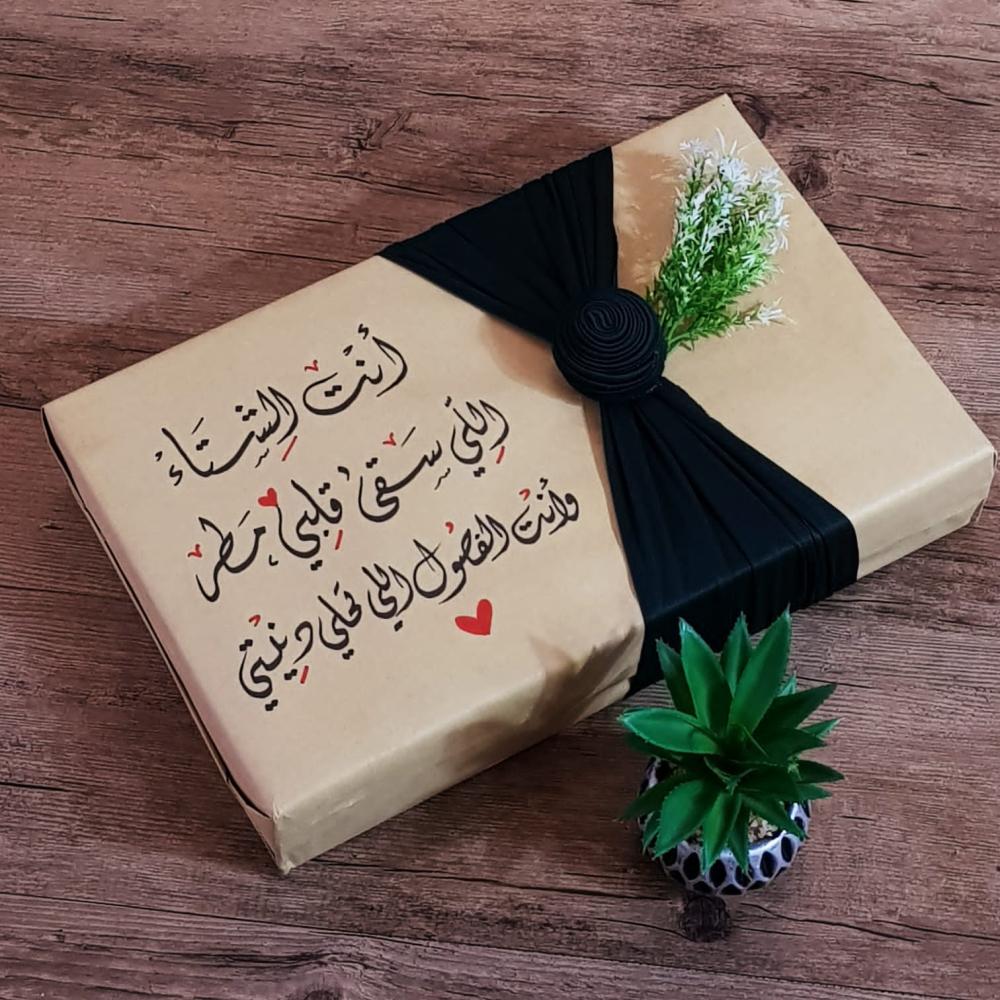 أنت الشتاء
اللي سقى قلبي مطر
وأنت الفصول اللي تحلي دنيتي